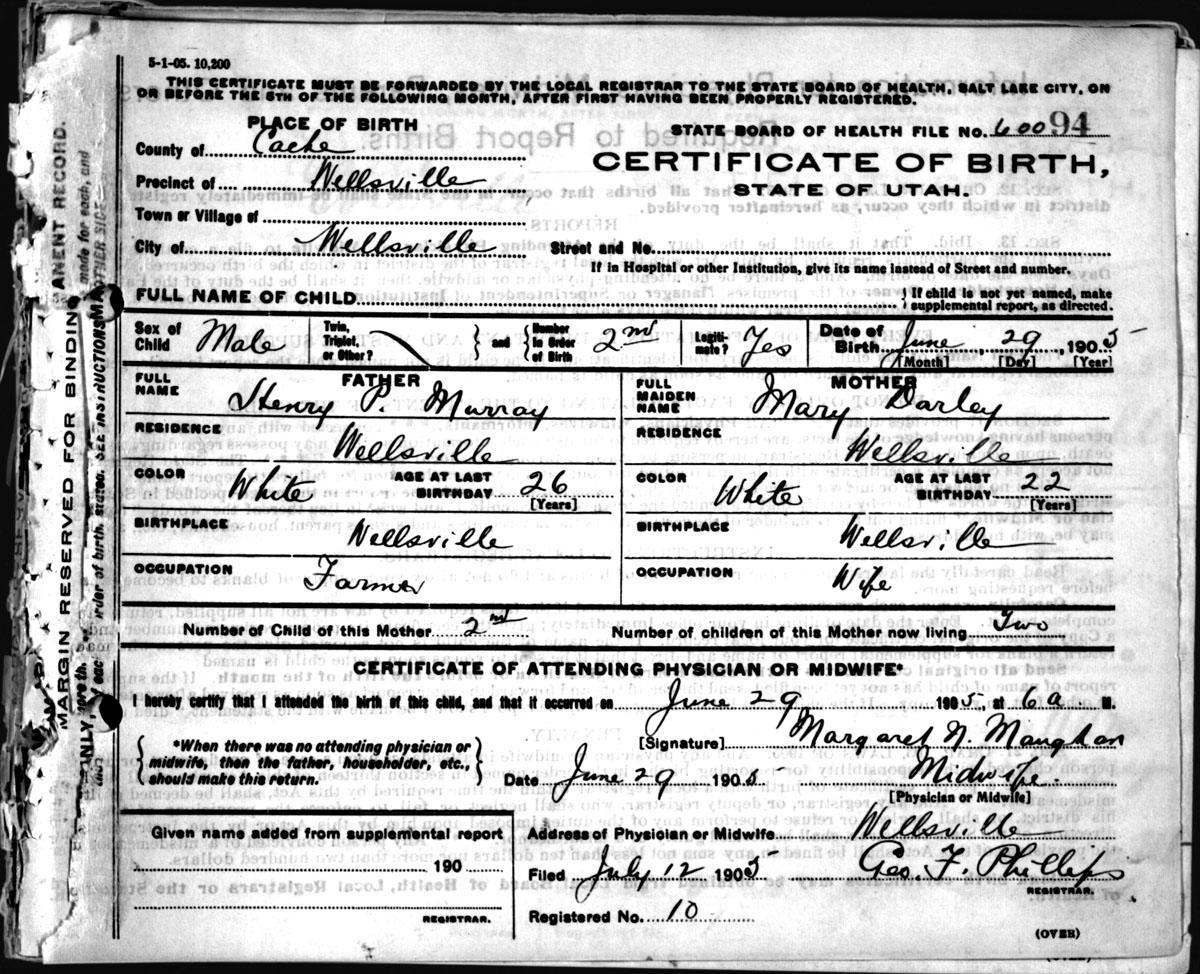 5-1-05. 10,200
THIS CERTIFICATE MUST BE FORWARDED BY THE LOCAL REGISTRAR TO THE STATE BOARD OF HEALTH, SALT LAKE CITY, ON
OR BEFORE THE 5TH OF THE FOLLOWING MONTH, AFTER FIRST HAVING BEEN PROPERLY REGISTERED.
PLACE OF BIRTH
STATE BOARD OF HEALTH FILE No. 60094
County of Cache
CERTIFICATE OF BIRTH,
Precinct of Wellsville
STATE OF UTAH.
Town or Village of
City of Wellsville Street and No.
If in Hospital or other Institution, give its name instead of Street and number.
FULL NAME OF CHILD } If child is not yet named, make
supplemental report, as directed.
Sex of Child Male Twin, Triplet, or Other? } and { Number in Order of Birth 2nd Legiti-mate? Yes Date of Birth June 29 1905
[Month] [Day] [Year]
FATHER MOTHER
FULL NAME Henry P. Murray FULL MAIDEN NAME Mary Darley
RESIDENCE Wellsville RESIDENCE Wellsville
COLOR White AGE AT LAST BIRTHDAY 26 [Years] COLOR White AGE AT LAST BIRTHDAY 22 [Years]
BIRTHPLACE Wellsville BIRTHPLACE Wellsville
OCCUPATION Farmer OCCUPATION Wife
Number of Child of this Mother 2nd Number of children of this Mother now living Two
CERTIFICATE OF ATTENDING PHYSICIAN OR MIDWIFE*
I hereby certify that I attended the birth of this child, and that it occurred on June 29 1905, at 6 a M.
[Signature] Margaret N. Maughan
{ *When there was no attending physician or
midwife, then the father, householder, etc.,
should make this return. }
Date June 29 1905 Midwife
[Physician or Midwife]
Given name added from supplemental report
190
REGISTRAR.
Address of Physician or Midwife Wellsville
Filed July 12 1905 Geo. F. Phillips
REGISTRAR.
Registered No. 10
(OVER)
MARGIN RESERVED FOR BINDING
ANENT RECORD.
made for each, and
of birth stated. SEE INSTRUCTIONS
OTHER SIDE